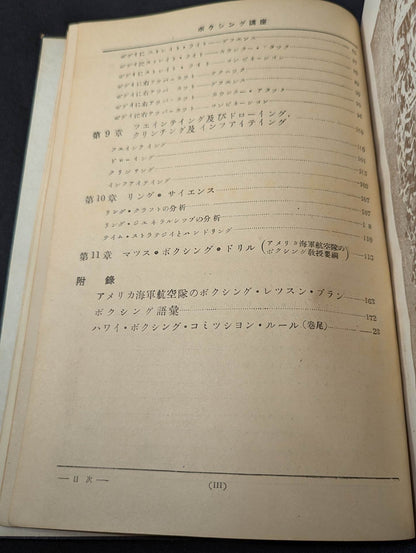 ボクシング講座
ボデイにストレイト・ライト・デフエンス
ボデイにストレイト・ライト・カウンター・アタック
ボデイにストレイト・ライト・コンビネーション
ボデイに右アッパーカット テクニック
ボデイに右アッパーカット デフエンス
ボデイに右アッパーカット カウンター・アタック
ボデイに右アッパーカット コンビネーション
第9章 フエインテイング及びドローイング、
クリンチング及インフアイテイング 105
フエインテイング 105
ドローイング
クリンチング 105
インフアイテイング
第10章 リング・サイエンス 107
リング・クラフトの分析 107
リング・ジエネラルシップの分析
タイム・ストラテジイとハンドリング
第11章 マツス・ボクシング・ドリル(アメリカ海軍航空隊の
ボクシング教授要綱) 113
附 錄
アメリカ海軍航空隊のボクシング・レツスン・プラン 163
ボクシング語彙 172
ハワイ・ボクシング・コミツシヨン・ルール(巻尾) 23
— 目次 —
(III)